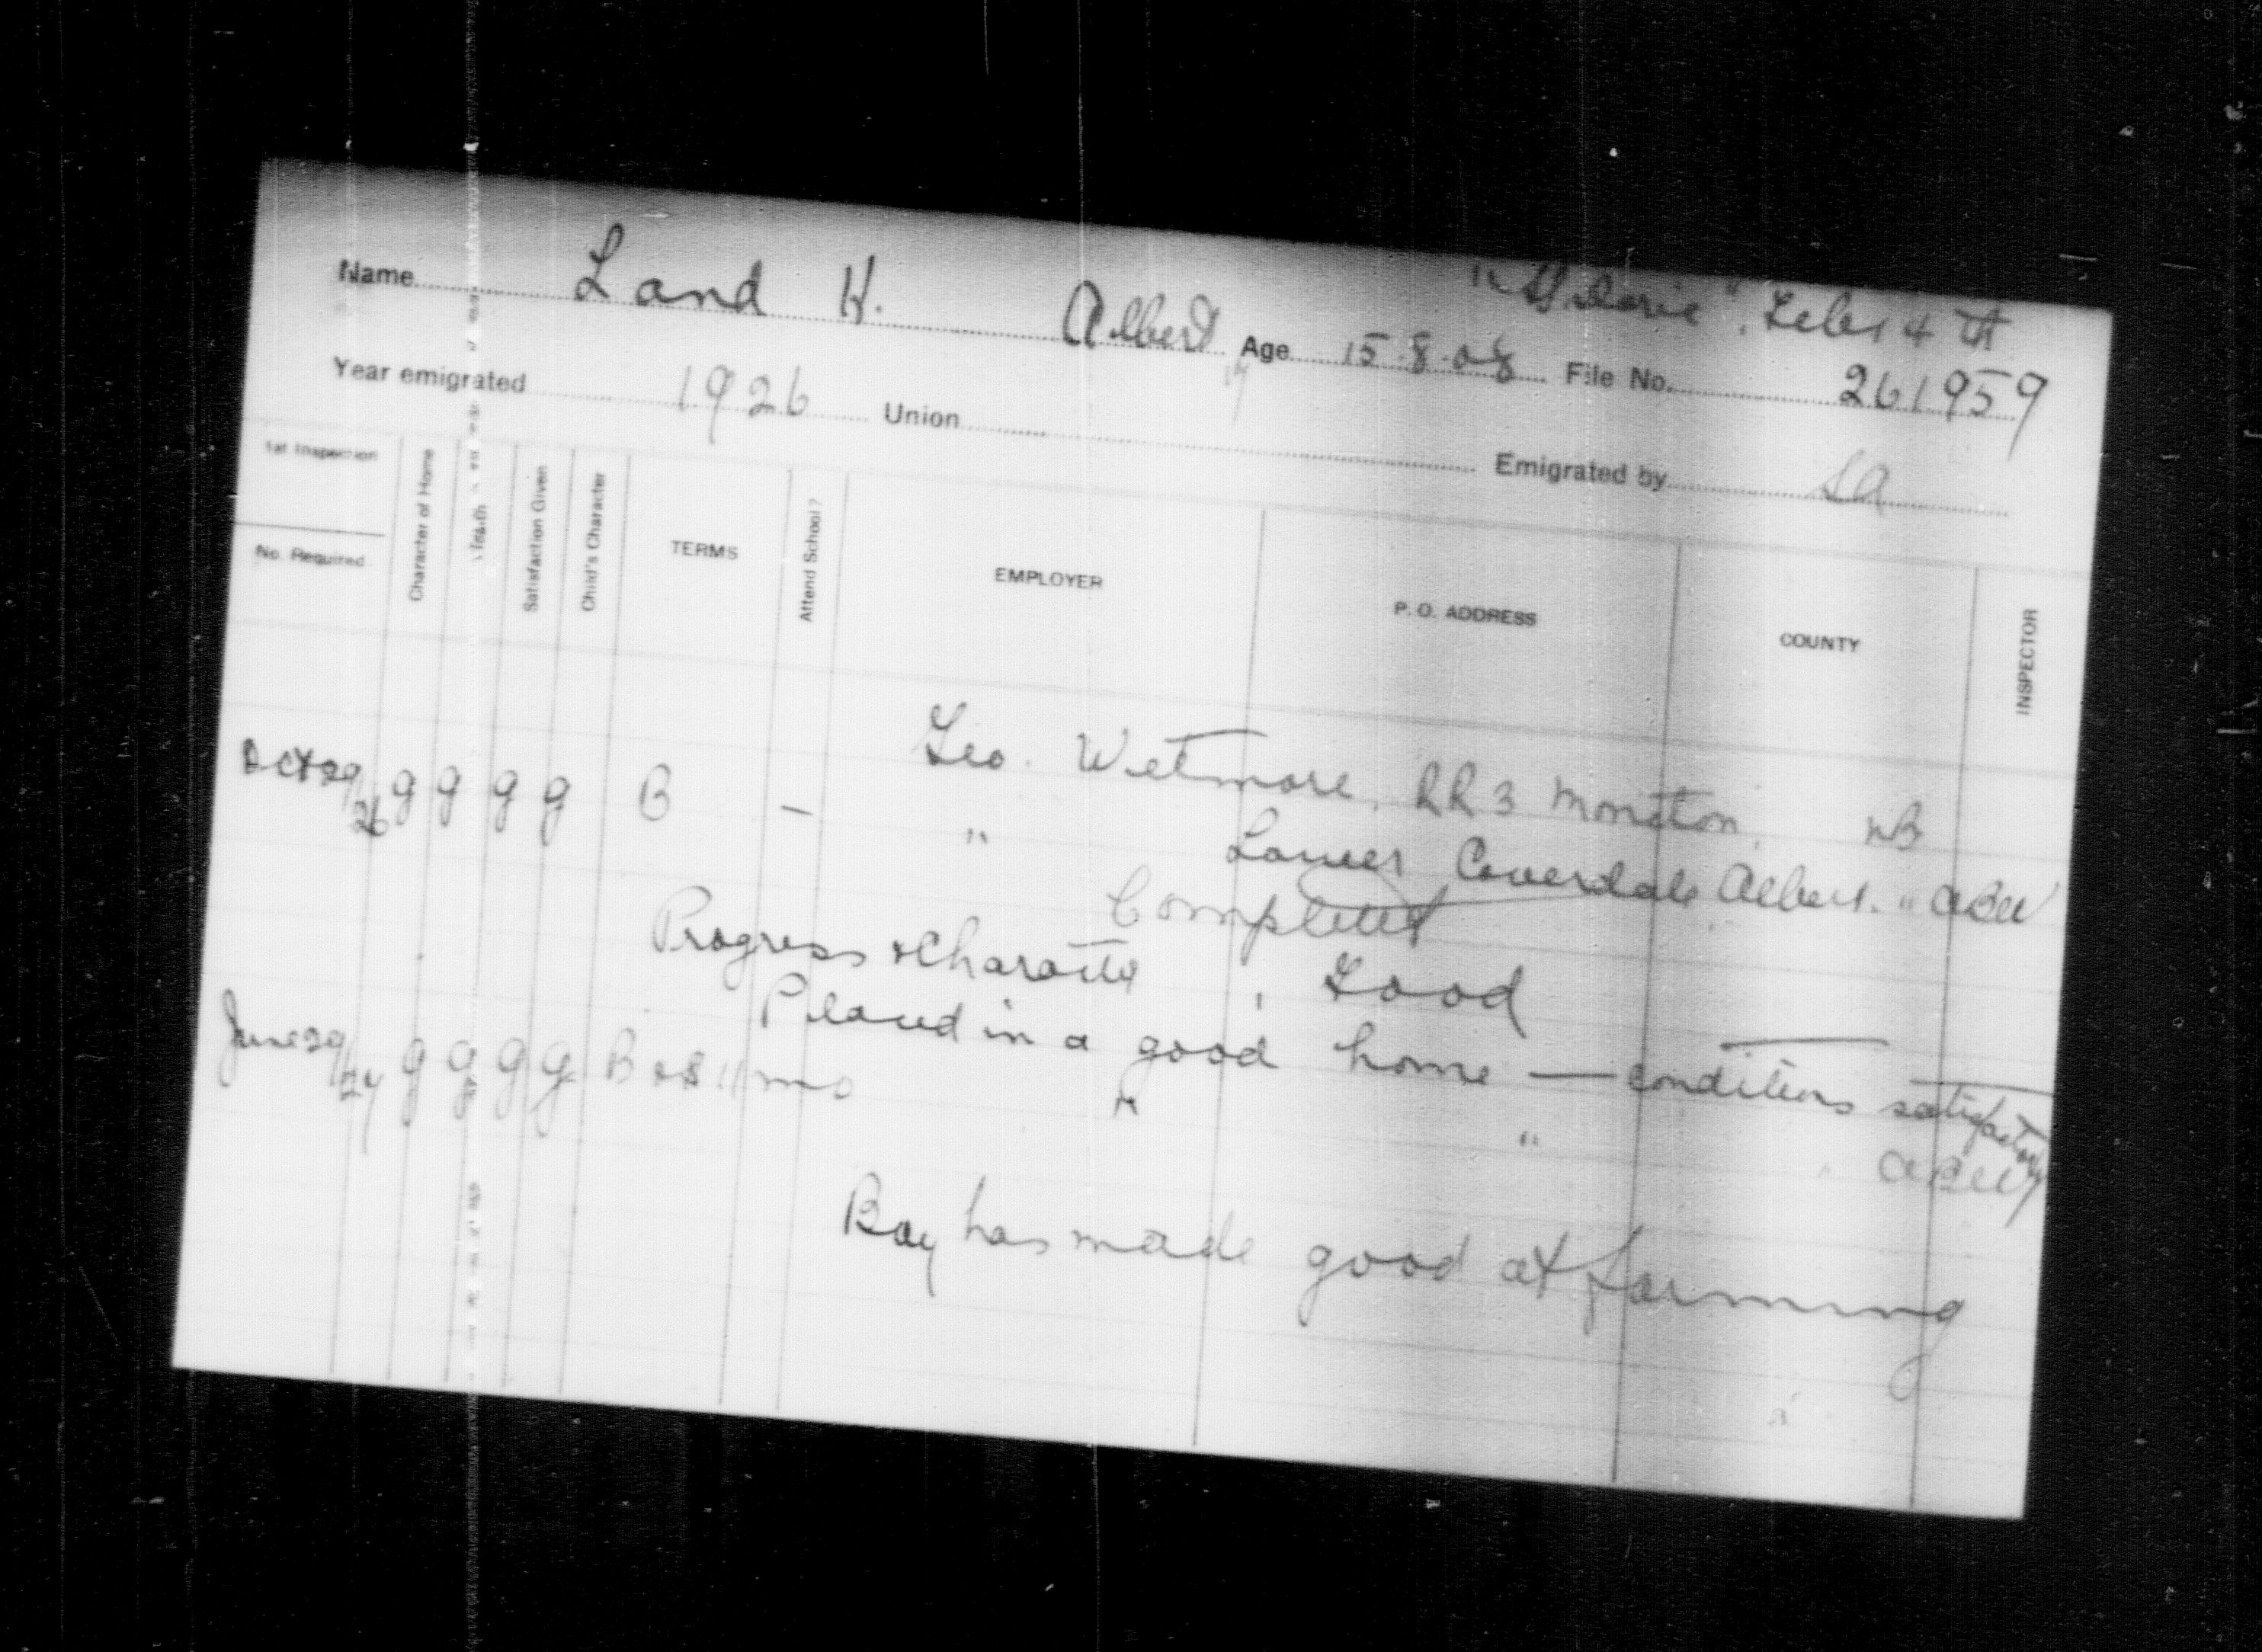 Feby 4th
Name Land H. Albert Age 15-8-08 File No. 261959
Year emigrated 1926 Union 17 Emigrated by SA
1st Inspection
No. Required
Character of Home
Health
Satisfaction Given
Child's Character
TERMS
Attend School?
EMPLOYER
P. O. ADDRESS
COUNTY
INSPECTOR
Geo. Wetmore, RR 3 Moncton, NB
Oct 29/26 g g g g B — " Lower Coverdale Albert. " ABW
Completed
Progress & Character, Good
Placed in a good home — conditions satisfactory
June 29/27 g g g g B & $ 11 mo " " ABW
Boy has made good at farming